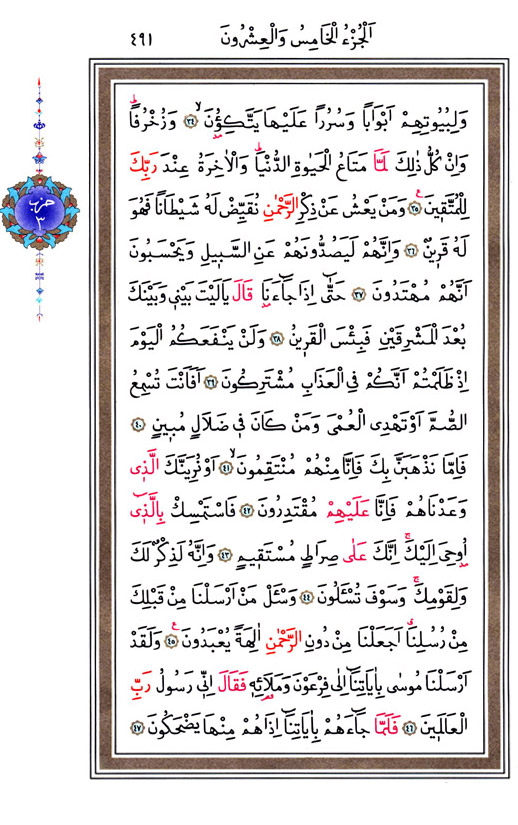 اَلْجُزْءُ الْخَامِسُ وَالْعِشْرُونَ ٤٩١
وَلِبُيُوتِهِمْ اَبْوَاباً وَسُرُراً عَلَيْهَا يَتَّكِؤُ۫نَۙ ﴿٣٤﴾ وَزُخْرُفاًۜ
وَاِنْ كُلُّ ذٰلِكَ لَمَّا مَتَاعُ الْحَيٰوةِ الدُّنْيَاۜ وَالْاٰخِرَةُ عِنْدَ رَبِّكَ
لِلْمُتَّقٖينَࣖ ﴿٣٥﴾ وَمَنْ يَعْشُ عَنْ ذِكْرِ الرَّحْمٰنِ نُقَيِّضْ لَهُ شَيْطَاناً فَهُوَ
لَهُ قَرٖينٌ ﴿٣٦﴾ وَاِنَّهُمْ لَيَصُدُّونَهُمْ عَنِ السَّبٖيلِ وَيَحْسَبُونَ
اَنَّهُمْ مُهْتَدُونَ ﴿٣٧﴾ حَتّٰٓى اِذَا جَٓاءَنَا قَالَ يَالَيْتَ بَيْنٖي وَبَيْنَكَ
بُعْدَ الْمَشْرِقَيْنِ فَبِئْسَ الْقَرٖينُ ﴿٣٨﴾ وَلَنْ يَنْفَعَكُمُ الْيَوْمَ
اِذْ ظَلَمْتُمْ اَنَّكُمْ فِي الْعَذَابِ مُشْتَرِكُونَ ﴿٣٩﴾ اَفَاَنْتَ تُسْمِعُ
الصُّمَّ اَوْ تَهْدِي الْعُمْيَ وَمَنْ كَانَ فٖي ضَلَالٍ مُبٖينٍ ﴿٤٠﴾
فَاِمَّا نَذْهَبَنَّ بِكَ فَاِنَّا مِنْهُمْ مُنْتَقِمُونَۙ ﴿٤١﴾ اَوْ نُرِيَنَّكَ الَّذٖي
وَعَدْنَاهُمْ فَاِنَّا عَلَيْهِمْ مُقْتَدِرُونَ ﴿٤٢﴾ فَاسْتَمْسِكْ بِالَّذٖٓي
اُو۫حِيَ اِلَيْكَۚ اِنَّكَ عَلٰى صِرَاطٍ مُسْتَقٖيمٍ ﴿٤٣﴾ وَاِنَّهُ لَذِكْرٌ لَكَ
وَلِقَوْمِكَۚ وَسَوْفَ تُسْـَٔلُونَ ﴿٤٤﴾ وَسْـَٔلْ مَنْ اَرْسَلْنَا مِنْ قَبْلِكَ
مِنْ رُسُلِنَا۠ اَجَعَلْنَا مِنْ دُونِ الرَّحْمٰنِ اٰلِهَةً يُعْبَدُونَࣖ ﴿٤٥﴾ وَلَقَدْ
اَرْسَلْنَا مُوسٰى بِاٰيَاتِنَٓا اِلٰى فِرْعَوْنَ وَمَلَا۬ئِهٖ فَقَالَ اِنّٖي رَسُولُ رَبِّ
الْعَالَمٖينَ ﴿٤٦﴾ فَلَمَّا جَٓاءَهُمْ بِاٰيَاتِنَٓا اِذَا هُمْ مِنْهَا يَضْحَكُونَ ﴿٤٧﴾
حزب
٣